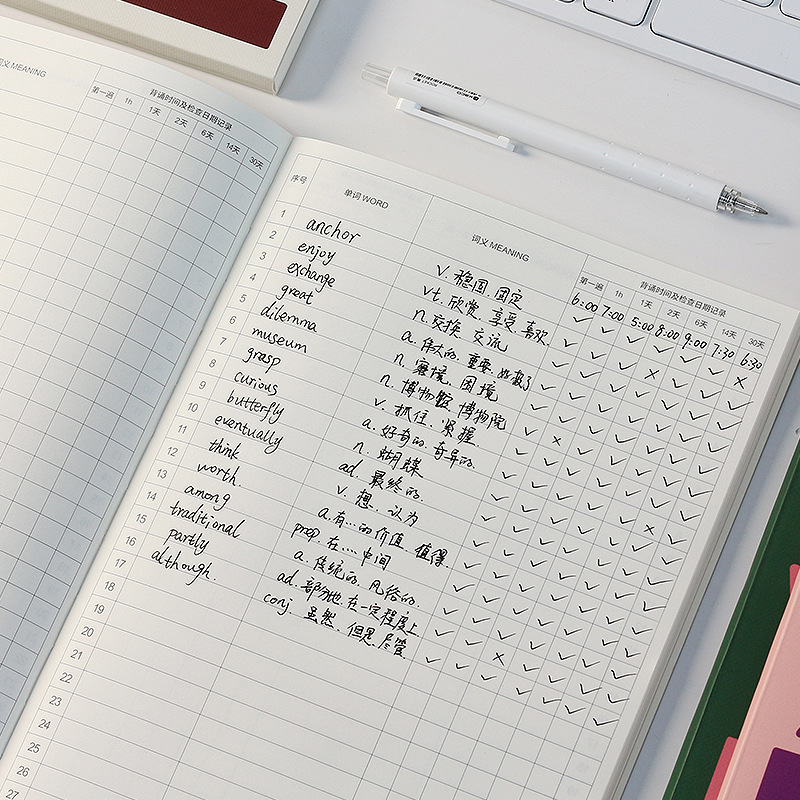 词义 MEANING
背诵时间及检查日期记录
第一遍 1h 1天 2天 6天 14天 30天
序号 单词 WORD 词义 MEANING 背诵时间及检查日期记录
第一遍 1h 1天 2天 6天 14天 30天
6:00 7:00 5:00 8:00 9:00 7:30 6:30
1 anchor v. 稳固.固定
2 enjoy vt. 欣赏.享受.喜欢.
3 exchange n. 交换.交流
4 great a. 伟大的.重要.好极了
5 dilemma n. 窘境.困境
6 museum n. 博物馆.博物院
7 grasp v. 抓住.紧握
8 curious a. 好奇的.奇异的.
9 butterfly n. 蝴蝶
10 eventually ad. 最终的.
11 think v. 想.认为
12 worth. a. 有...的价值.值得
13 among prep. 在....中间
14 traditional a. 传统的.风俗的.
15 partly ad. 部分地.在一定程度上
16 although. conj. 虽然.但是.尽管.
17
18
19
20
21
22
23
24
25
26
27